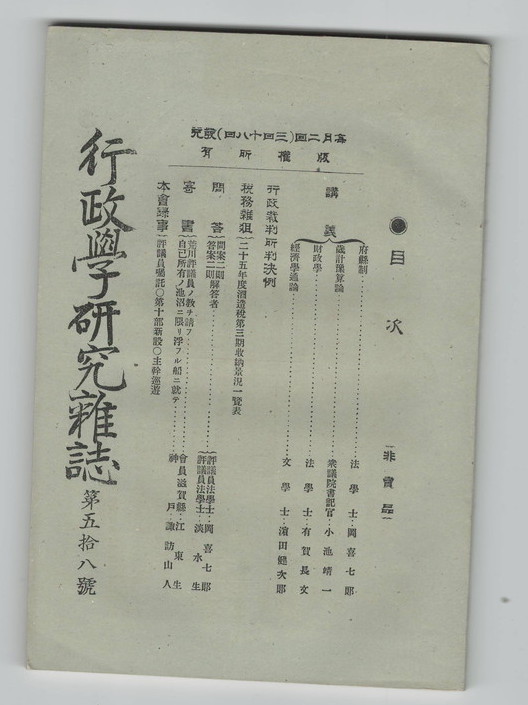 每月二回(三回十八回)發兌
版權所有
●目次
非賣品
講義
府縣制……法學士 岡喜七郎
歲計豫算論……衆議院書記官 小池靖一
財政學……法學士 有賀長文
經濟學通論……文學士 濵田健次郎
行政裁判所判決例
稅務雜爼 二十五年度酒造稅第三期收納景況一覽表
問答
問案二則……評議員法學士 岡喜七郎
答案二則解答者……評議員法學士 淡水生
寄書
荒川評議員ノ敎ヲ請フ……會員滋賀縣 江東生
自己所有ノ池沼ニ限リ浮フル船ニ就テ……神戶 諏訪山人
本會錄事 評議員囑託○第十部新設○主幹巡遊
行政學研究雜誌 第五拾八號